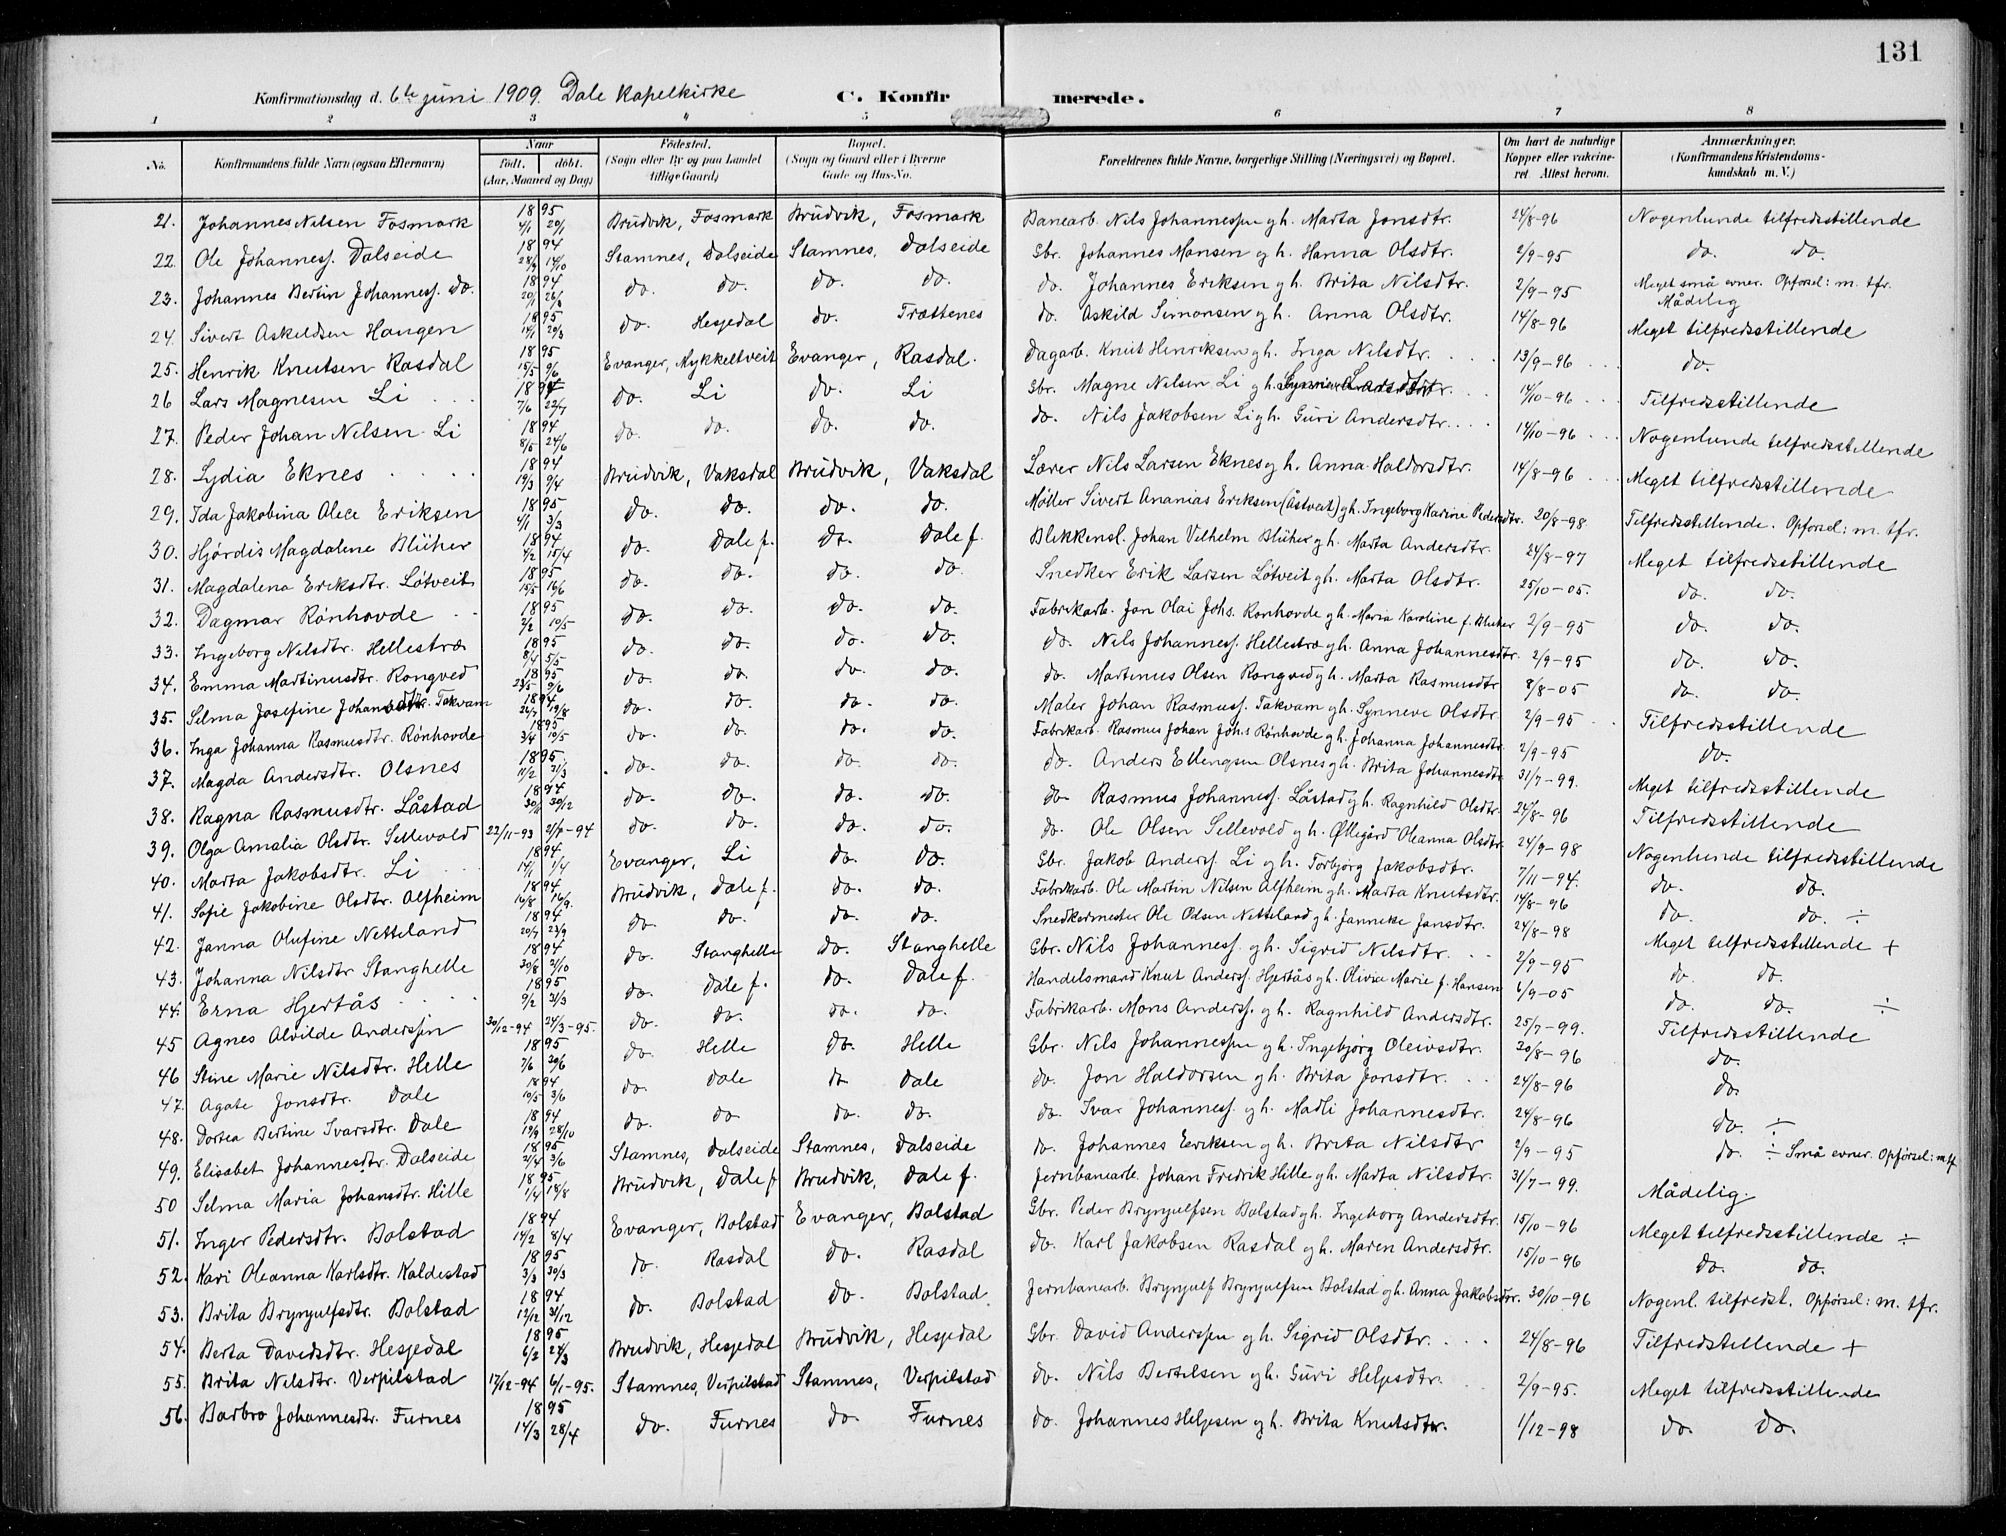 131
Konfirmationsdag d. 6te juni 1909. Dale Kapelkirke C. Konfirmerede.
1 2 3 4 5 6 7 8
No. Konfirmandens fulde Navn (ogsaa Efternavn) Naar født. døbt. (Aar, Maaned og Dag) Fødested. (Sogn eller By og paa Landet tillige Gaard) Bopæl. (Sogn og Gaard eller i Byerne Gade og Hus-No. Forældrenes fulde Navne, borgerlige Stilling (Næringsvei) og Bopæl. Om havt de naturlige Kopper eller vakcineret. Attest herom. Anmærkninger. (Konfirmandens Kristendomskundskab m. V.)
21. Johannes Nilsen Fosmark 1895 4/1 20/1 Brudvik, Fosmark Brudvik, Fosmark Banearb. Nils Johannessen gh. Marta Jonsdtr. 24/8-96 Nogenlunde tilfredsstillende
22. Ole Johanness. Dalseide 1894 14/10 Stamnes, Dalseide Stamnes, Dalseide Gbr. Johannes Monsen gh. Hanna Olsdtr. 2/9-95 do. do.
23. Johannes Bertin Johanness. do. 1894 do. do. do. do. do. Johannes Eriksen gh. Brita Nilsdtr. 2/9-95 Meget små evner. Opførsel: m. tfr. Mådelig
24. Sivert Askeldsen Haugen 1895 20/3 do. Hesjedal do. Trættenes do. Askild Simonsen gh. Anna Olsdtr. 14/8-96 Meget tilfredsstillende
25. Henrik Knutsen Rasdal 1895 15/5 9/6 Evanger, Mykkeltveit Evanger, Rasdal. Dagarb. Knut Henriksen gh. Inga Nilsdtr. 13/9-96 do.
26 Lars Magnesen Li 1894 7/6 22/7 do. Li do. Li Gbr. Magne Nilsen Li gh. Larsdtr. 14/10-96 Tilfredsstillende
27. Peder Johan Nilsen Li 1894 8/5 24/6 do. do. do. do. do. Nils Jakobsen Li gh. Guri Andersdtr. 14/10-96 Nogenlunde tilfredsstillende
28. Lydia Eknes 1894 19/3 9/4 Brudvik, Vaksdal Brudvik, Vaksdal Lærer Nils Larsen Eknes gh. Anna Haldorsdtr. 14/8-96 Meget tilfredsstillende
29. Ida Jakobina Alice Eriksen 1895 4/1 3/3 do. do. do. do. Møller Sivert Ananias Eriksen (Åstveit) gh. Ingeborg Karine Pedersdtr. 20/8-98 Tilfredsstillende. Opførsel: m. tfr.
30. Hjørdis Magdalene Blüher 1894 4/2 15/4 do. Dale f. do. Dale f. Blikkensl. Johan Vilhelm Blüher gh. Marta Andersdtr. 24/8-97 Meget tilfredsstillende
31. Magdalena Eriksdtr. Løtveit 1895 15/5 16/6 do. do. do. do. Snedker Erik Larsen Løtveit gh. Marta Olsdtr. 25/10-05. do. do.
32. Dagmar Rønhovde 1895 2/2 10/5 do. do. do. do. Fabrikarb. Jon Olai Johs. Rønhovde gh. Maria Karoline f. Blüher 2/9-95 do. do.
33. Ingeborg Nilsdtr. Hellestræ 1895 8/4 5/5 do. do. do. do. do. Nils Johanness. Hellestræ gh. Anna Johannesdtr. 2/9-95 do. do.
34. Emma Martinusdtr. Rongved 1895 23/5 9/6 do. do. do. do. do. Martinus Olsen Rongved gh. Marta Rasmusdtr 8/8-05 do. do.
35. Selma Josefine Johansdtr. Takvam 1894 26/7 19/8 do. do. do. do. Maler Johan Rasmuss. Takvam gh. Synneve Olsdtr. 2/9-95 Tilfredsstillende
36. Inga Johanna Rasmusdtr. Rønhovde 1895 3/4 10/5 do. do. do. do. Fabrikarb. Rasmus Johan Johs Rønhovde gh. Johanna Johannesdtr. 2/9-95 do.
37. Magda Andersdtr. Olsnes 1895 11/2 31/3 do. do. do. do. do. Anders Ellengsen Olsnes gh. Brita Johannesdtr. 31/7-99. Meget tilfredsstillende
38. Ragna Rasmusdtr. Låstad 1894 30/11 30/12 do. do. do. do. do. Rasmus Johanness. Låstad gh. Ragnhild Olsdtr. 24/8-96 Tilfredsstillende
39. Olga Amalia Olsdtr. Sellevold 22/11-93 2/9-94 do. do. do. do. do. Ole Olsen Sellevold gh. Øllegård Oleanna Olsdtr. 24/9-98 Nogenlunde tilfredsstillende
40. Marta Jakobsdtr. Li 1894 14/1 1/4 Evanger, Li do. do. Gbr. Jakob Anderss. Li gh. Torbjørg Jakobsdtr. 7/11-94. do. do.
41. Sofie Jakobine Olsdtr. Alfheim 1894 16/8 16/9. Brudvik, Dale f. do. do. Fabrikarb. Ole Martin Nilsen Alfheim gh. Marta Knutsdtr. 14/8-96 do. do. ÷
42. Janna Olufine Netteland 1894 20/7 23/9 do. do. do. do. Snedkermester Ole Olsen Netteland gh. Janneke Jansdtr. 24/8-98 Meget tilfredsstillende +
43. Johanna Nilsdtr Stanghelle 1894 30/8 21/10 do. Stanghelle do. Stanghelle Gbr. Nils Johanness. gh. Sigrid Nilsdtr. 2/9-95 do. do.
44. Erna Hjertås 1895 9/2 31/3 do. Dale f. do. Dale f. Handelsmand Knut Anderss. Hjertås gh. Olivia Marie f. Hansen 6/9-05 do. do. ÷
45 Agnes Alvilde Anderssen 30/12-94 24/3-95. do. do. do. do. Fabrikarb. Mons Anderss. gh. Ragnhild Andersdtr. 25/7-99. Tilfredsstillende
46 Stine Marie Nilsdtr. Helle 1895 7/6 30/6 do. Helle do. Helle Gbr. Nils Johannessen gh. Ingebjørg Oleivsdtr. 20/8-96 do.
47. Agate Jonsdtr. Dale 1894 10/5 3/6 do. Dale do Dale do. Jon Haldorsen gh. Brita Jonsdtr. 24/8-96 do.
48. Dortea Bertine Ivarsdtr. Dale 1894 19/9 28/10 do. do. do. do. do. Ivar Johanness. gh. Madli Johannesdtr. 24/8-96 do. ÷
49. Elisabet Johannesdtr. Dalseide 1895 21/4 3/6 Stamnes, Dalseide Stamnes, Dalseide do. Johannes Eeriksen gh. Brita Nilsdtr 2/9-95 do. ÷ Små evner. Opførsel: m tf.
50 Selma Maria Johansdtr. Hille 1895 1/4 18/8 Brudvik, Dale f Brudvik, Dale f. Jernbanearb. Johan Fredrik Hille gh. Marta Nilsdtr. 31/7-99. Mådelig.
51. Inger Pedersdtr. Bolstad 1894 14/2 8/4 Evanger, Bolstad Evanger, Bolstad Gbr. Peder Brynjulfsen Bolstad gh. Ingeborg Andersdtr. 15/10-96 Meget tilfredsstillende ÷
52. Kari Oleanna Karlsdtr. Kaldestad 1895 3/3 30/3 do. Rasdal do. Rasdal do. Karl Jakobsen Rasdal gh. Maren Andersdtr. 15/10-96 do. do.
53. Brita Brynjulfsdtr. Bolstad 1894 12/12 31/12 do. Bolstad do. Bolstad Jernbanearb. Brynjulf Brynjulfsen Bolstad gh. Anna Jakobsdtr. 30/10-96 Nogenl. tilfredst. Opførsel: m. tfr.
54. Berta Davidsdtr. Hesjedal 1895 6/2 24/3 Brudvik, Hesjedal Brudvik, Hesjedal Gbr. David Anderssen gh. Sigrid Olsdtr. 24/8-96 Tilfredstellende +
55. Brita Nilsdtr. Verpilstad 17/12-94 6/1-95. Stamnes, Verpilstad Stamnes, Verpilstad do. Nils Bertelsen gh. Guri Helgesdtr. 2/9-95. Meget tilfredsstillende
56. Barbro Johannesdtr. Furnes 1895 14/3 28/4 do. Furnes do. Furnes do. Johannes Helgesen gh. Brita Knutsdtr. 1/12-98 do. do.